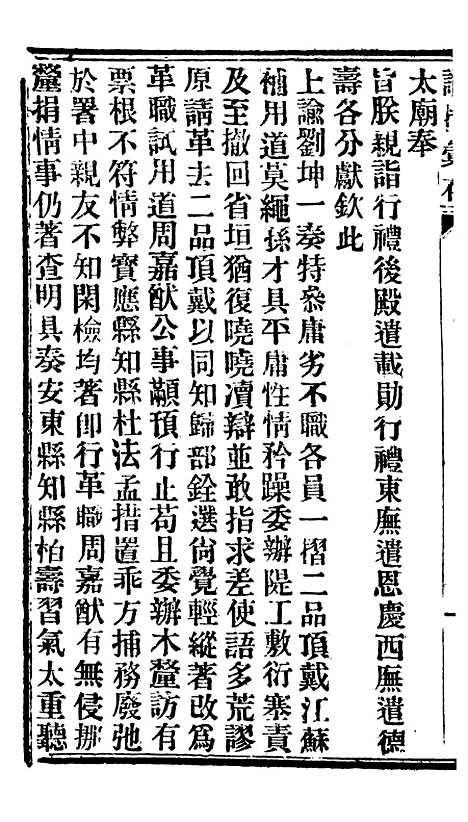 太廟奉
旨朕親詣行禮後殿遣載勛行禮東廡遣恩慶西廡遣德
壽各分獻欽此
上諭劉坤一奏特參庸劣不職各員一摺二品頂戴江蘇
補用道莫繩孫才具平庸性情矜躁委辦隄工敷衍塞責
及至撤回省垣猶復曉曉凟辯並敢指求差使語多荒謬
原請革去二品頂戴以同知歸部銓選尙覺輕縱著改爲
革職試用道周嘉猷公事顢預行止苟且委辦木釐訪有
票根不符情弊寳應縣知縣杜法孟措置乖方捕務廢弛
於署中親友不知閑檢均著卽行革職周嘉猷有無侵挪
釐捐情事仍著查明具奏安東縣知縣柏壽習氣太重聽